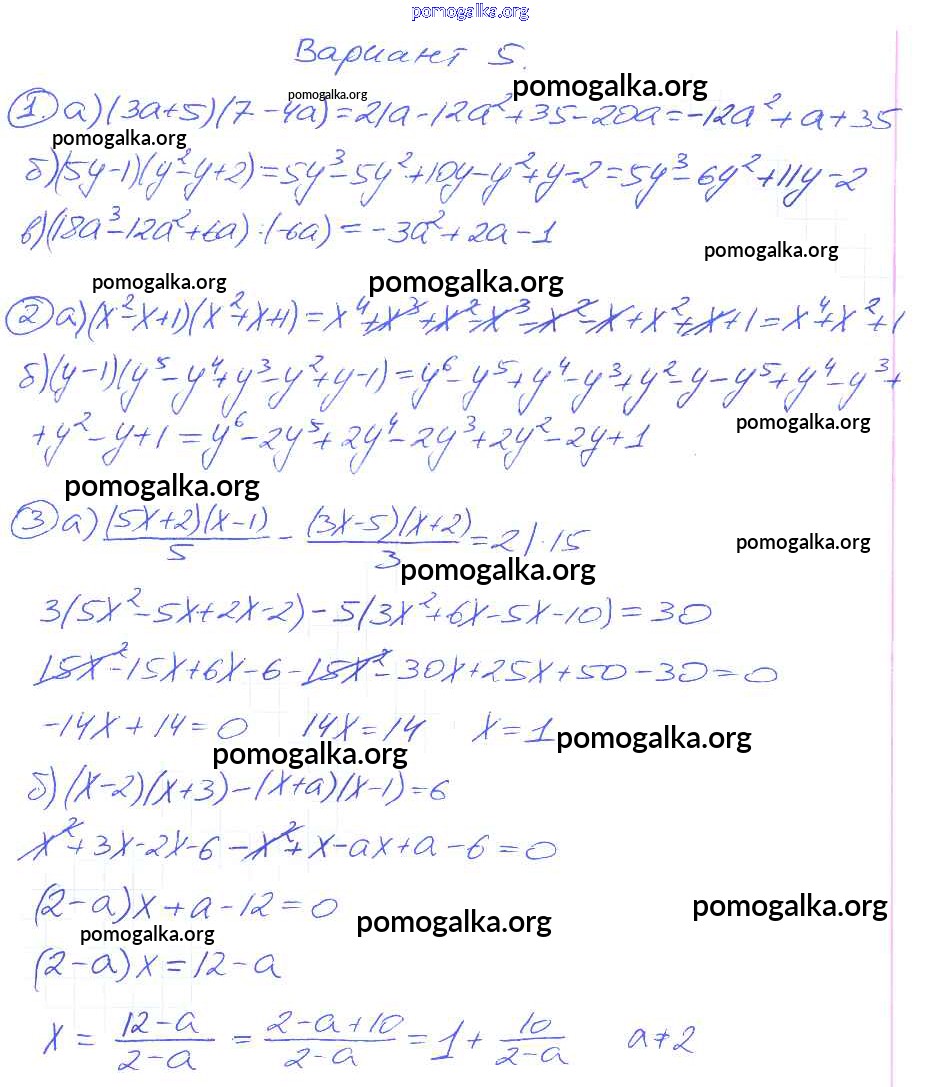 pomogalka.org
Вариант 5.
pomogalka.org
pomogalka.org
① а) (3a+5)(7-4a)=21a-12a²+35-20a=-12a²+a+35
pomogalka.org
б) (5y-1)(y²-y+2)=5y³-5y²+10y-y²+y-2=5y³-6y²+11y-2
в) (18a³-12a²+6a):(-6a)=-3a²+2a-1
pomogalka.org
pomogalka.org
pomogalka.org
② а) (x²-x+1)(x²+x+1)=x⁴+x³+x²-x³-x²-x+x²+x+1=x⁴+x²+1
б) (y-1)(y⁵-y⁴+y³-y²+y-1)=y⁶-y⁵+y⁴-y³+y²-y-y⁵+y⁴-y³+
pomogalka.org
+y²-y+1=y⁶-2y⁵+2y⁴-2y³+2y²-2y+1
pomogalka.org
③ а) (5x+2)(x-1)/5 - (3x-5)(x+2)/3 =2 |·15
pomogalka.org
pomogalka.org
3(5x²-5x+2x-2)-5(3x²+6x-5x-10)=30
15x²-15x+6x-6-15x²-30x+25x+50-30=0
-14x+14=0 14x=14 x=1
pomogalka.org
pomogalka.org
б) (x-2)(x+3)-(x+a)(x-1)=6
x²+3x-2x-6-x²+x-ax+a-6=0
(2-a)x+a-12=0
pomogalka.org
pomogalka.org
pomogalka.org
(2-a)x=12-a
x = 12-a/2-a = 2-a+10/2-a = 1+ 10/2-a a≠2